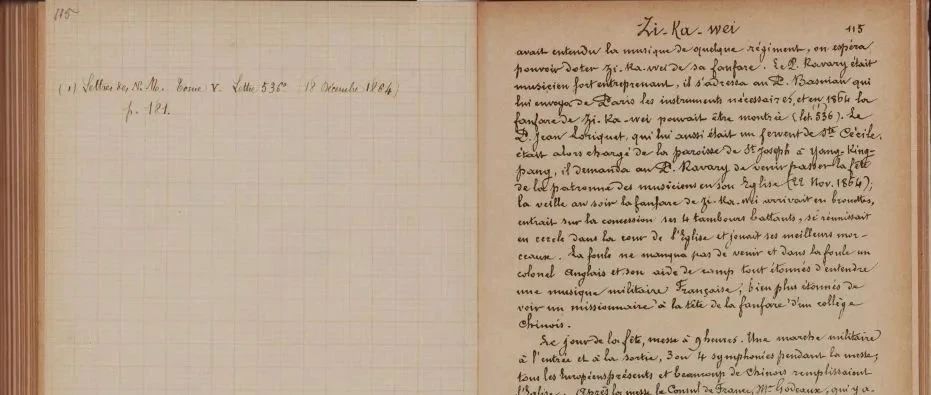 115
(1) Lettres des N. M. Tome V. Lettre 536e 18 Décembre 1864)
p. 181.
Zi-Ka-wei 115
avait entendu la musique de quelque régiment, on espéra
pouvoir doter Zi-Ka-wei de sa fanfare. Le P. Ravary était
musicien fort entreprenant, il s'adressa au P. Basuiau qui
lui envoya de Paris les instruments nécessaires, et en 1864 la
fanfare de Zi-Ka-wei pouvait être montrée (let. 536). Le (1)
P. Jean Loriquet, qui lui aussi était un fervent de Ste Cécile,
était alors chargé de la paroisse de St Joseph à Yang-King-
pang, il demanda au P. Ravary de venir passer la fête
de la patronne des musiciens en son Eglise (22 Nov. 1864);
la veille au soir la fanfare de Zi-Ka-wei arrivait en brouettes,
entrait sur la concession ses 4 tambours battants, se réunissait
en cercle dans la cour de l'Eglise et jouait ses meilleurs mor-
ceaux. La foule ne manqua pas de venir et dans la foule un
colonel Anglais et son aide de camp tout étonnés d'entendre
une musique militaire Française; bien plus étonnés de
voir un missionnaire à la tête de la fanfare d'un collège
Chinois.
Le jour de la fête, messe à 9 heures. Une marche militaire
à l'entrée et à la sortie, 3 ou 4 symphonies pendant la messe;
tous les Européens présents et beaucoup de Chinois remplissaient
l'Eglise. Après la messe le Consul de France, Mr Godeaux, qui y a-